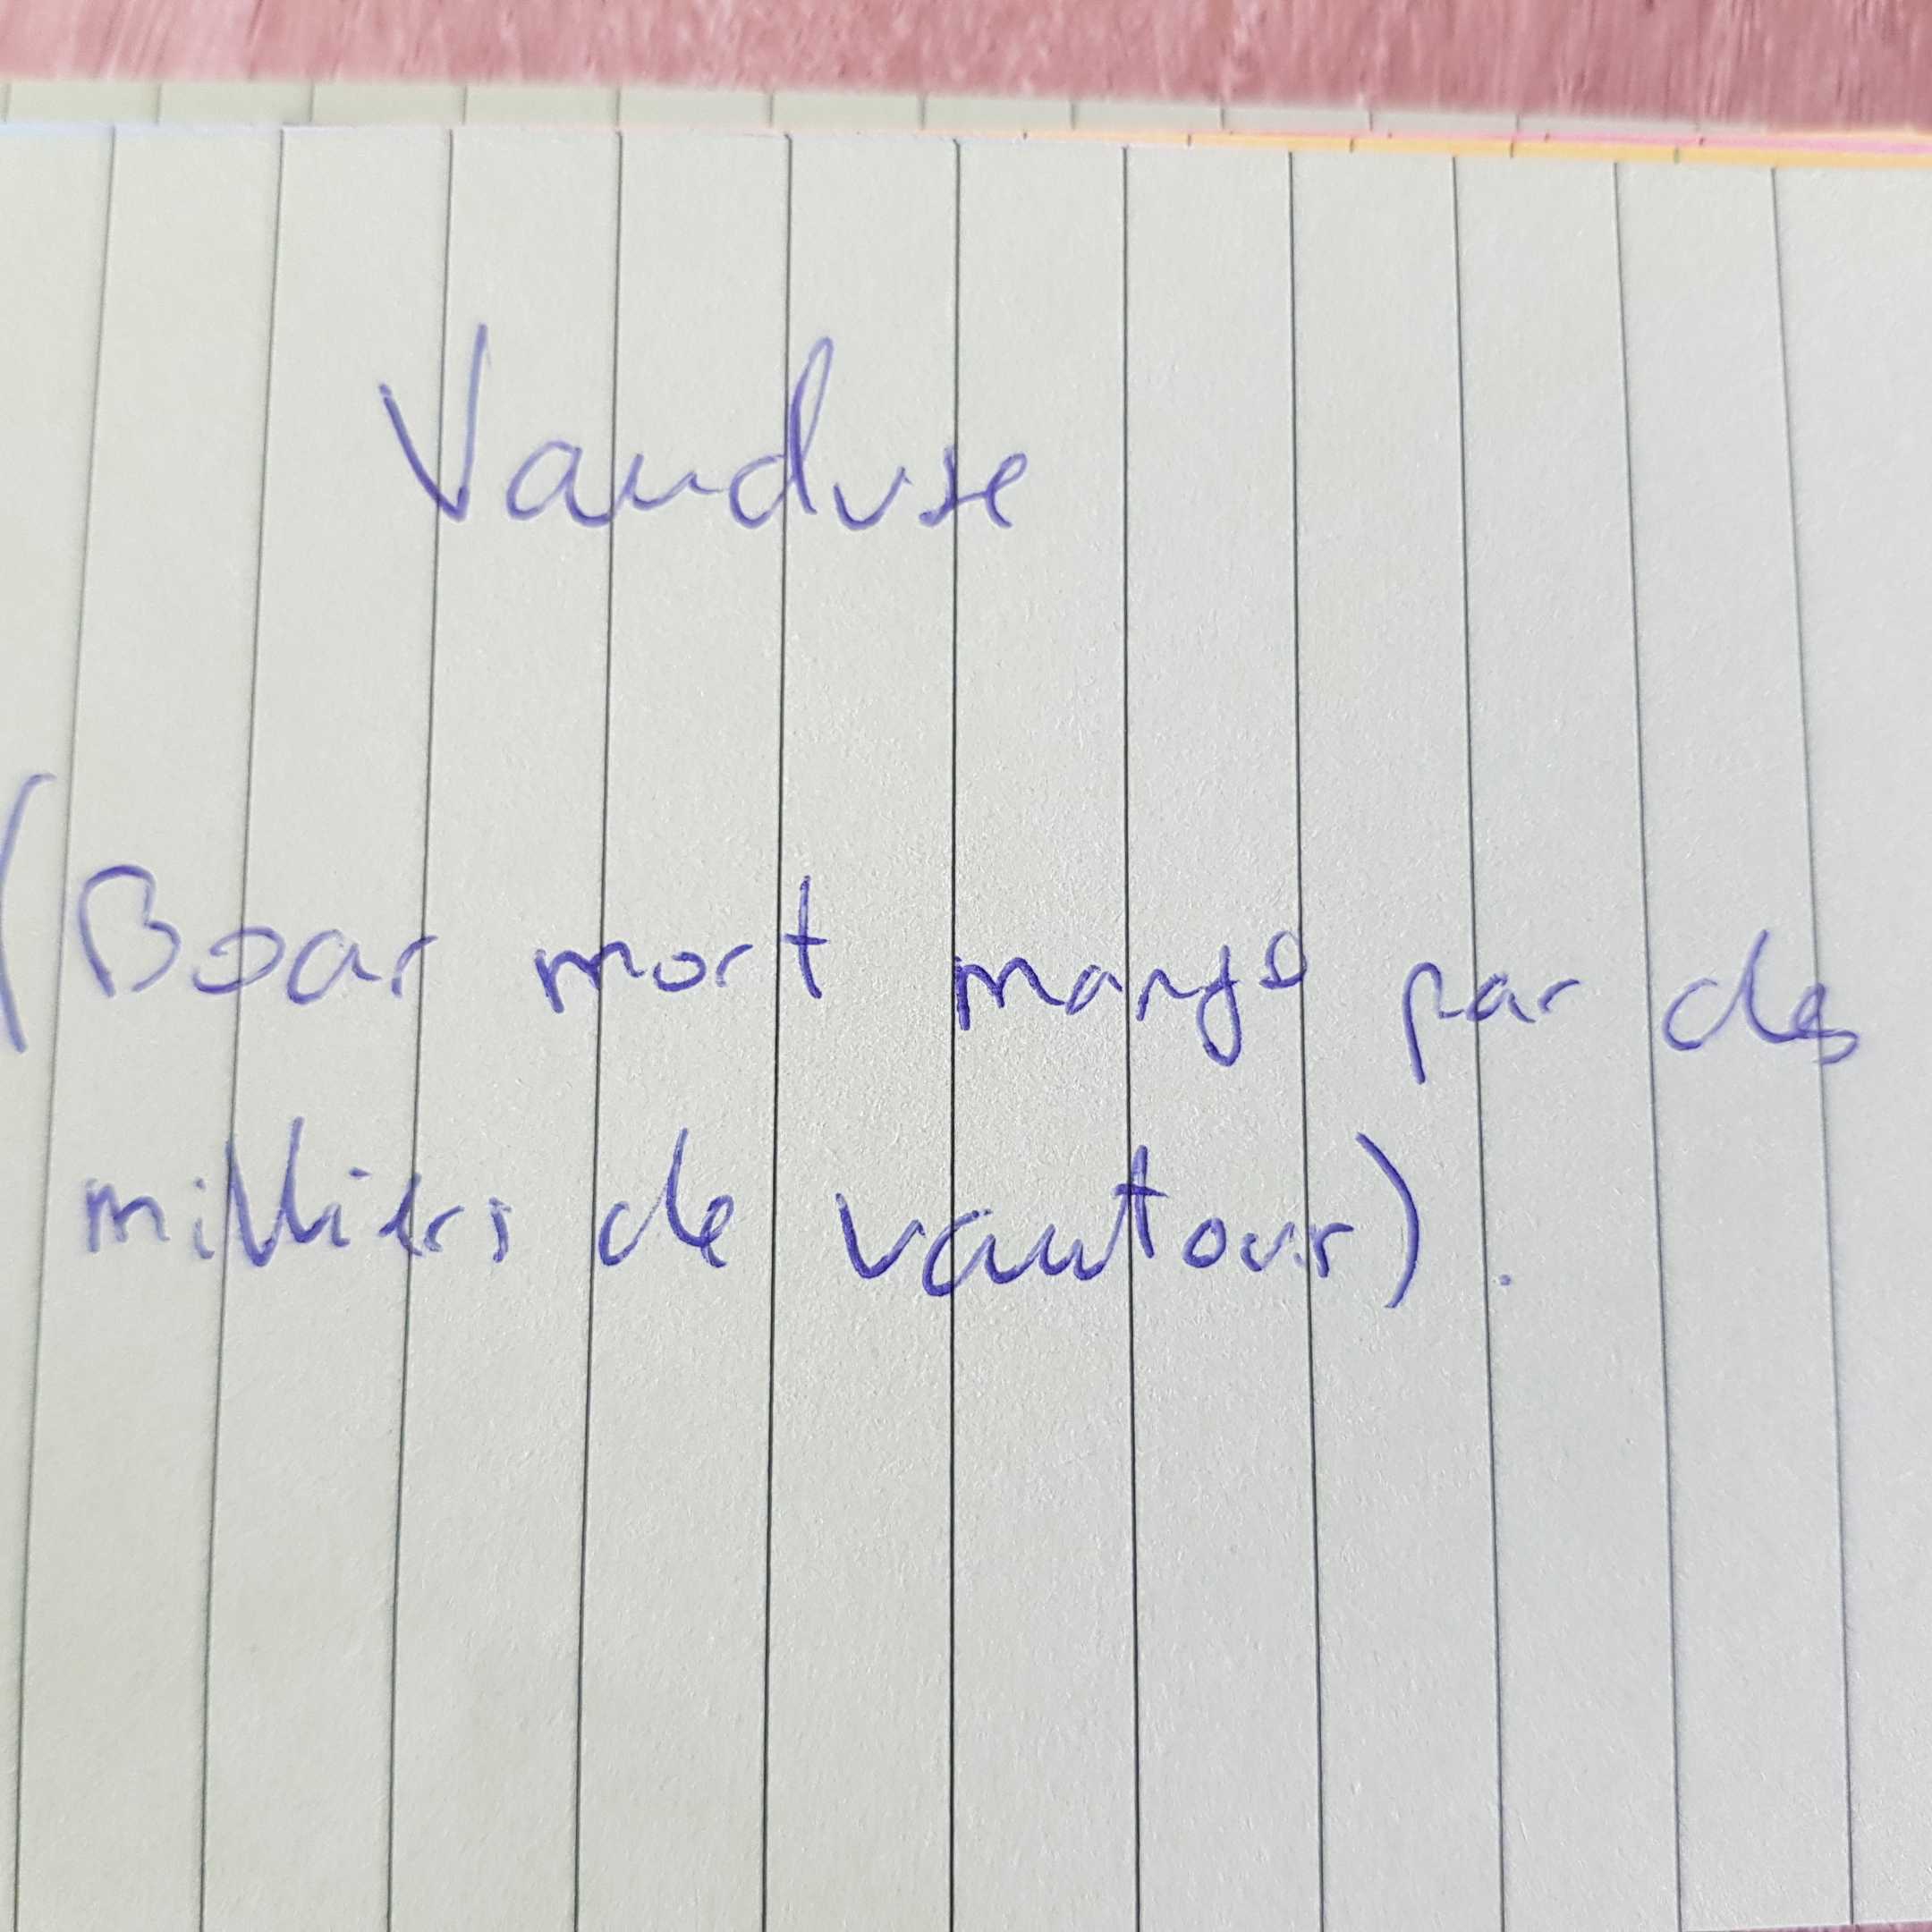 Vauduse
(Boar mort mangé par des
milliers de vautour).